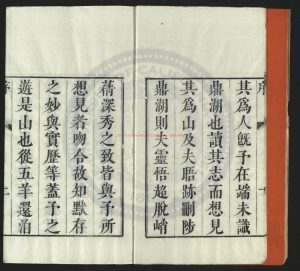 其爲人旣予在端未識
鼎湖也讀其志而想見
其爲山及夫踏跡刪陟
鼎湖則夫靈悟超脫峭
蒨深秀之致皆與予所
想見者吻合故知默存
之妙與實歷等蓋予之
遊是山也從五羊還泊